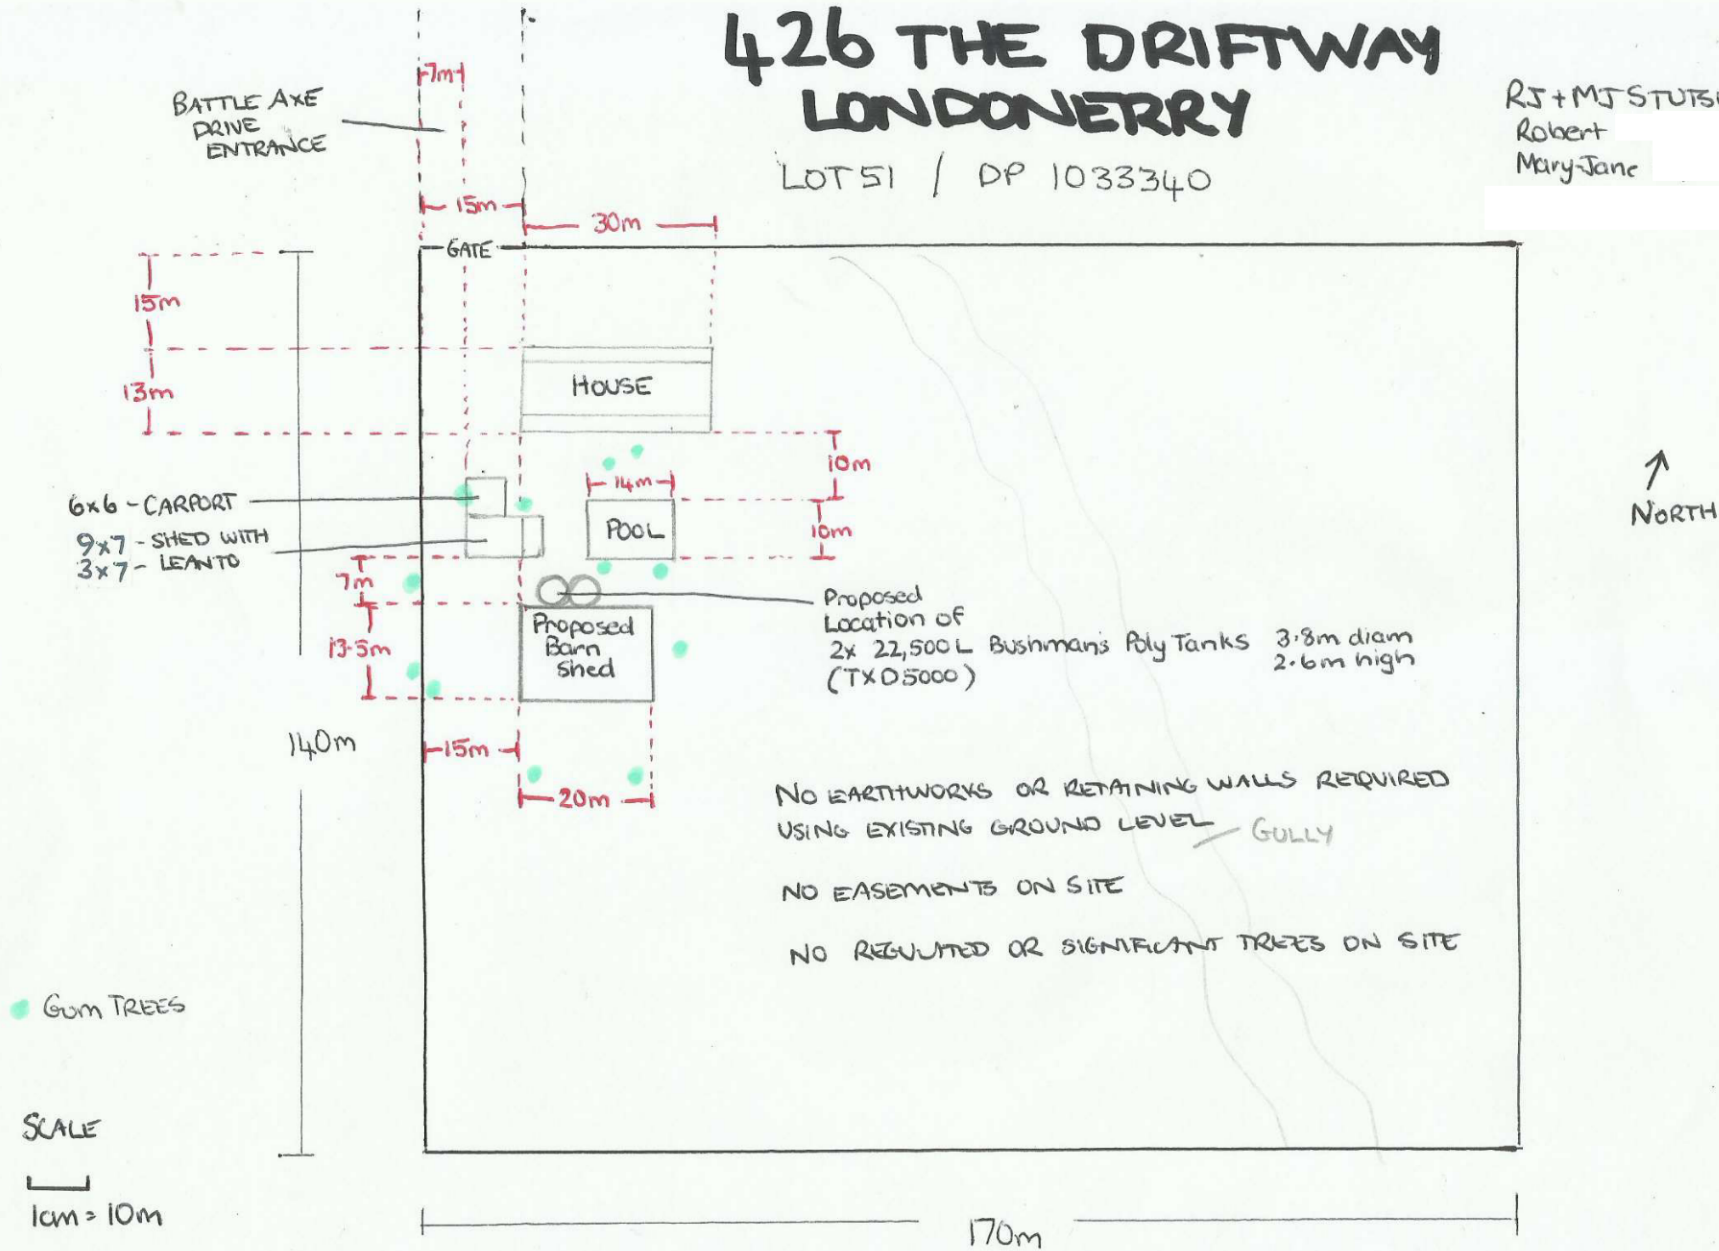 426 THE DRIFTWAY
LONDONERRY
LOT 51 / DP 1033340
RJ + MJ
Robert
Mary-Jane
BATTLE AXE
DRIVE
ENTRANCE
7m
15m
30m
GATE
15m
13m
HOUSE
10m
14m
POOL
10m
6x6 - CARPORT
9x7 - SHED WITH
3x7 - LEANTO
7m
13.5m
Proposed
Barn
Shed
Proposed
Location of
2x 22,500 L Bushman's Poly Tanks 3.8m diam
2.6m high
(TXD5000)
NORTH
140m
15m
20m
NO EARTHWORKS OR RETAINING WALLS REQUIRED
USING EXISTING GROUND LEVEL
GULLY
NO EASEMENTS ON SITE
NO REGULATED OR SIGNIFICANT TREES ON SITE
GUM TREES
SCALE
1cm = 10m
170m